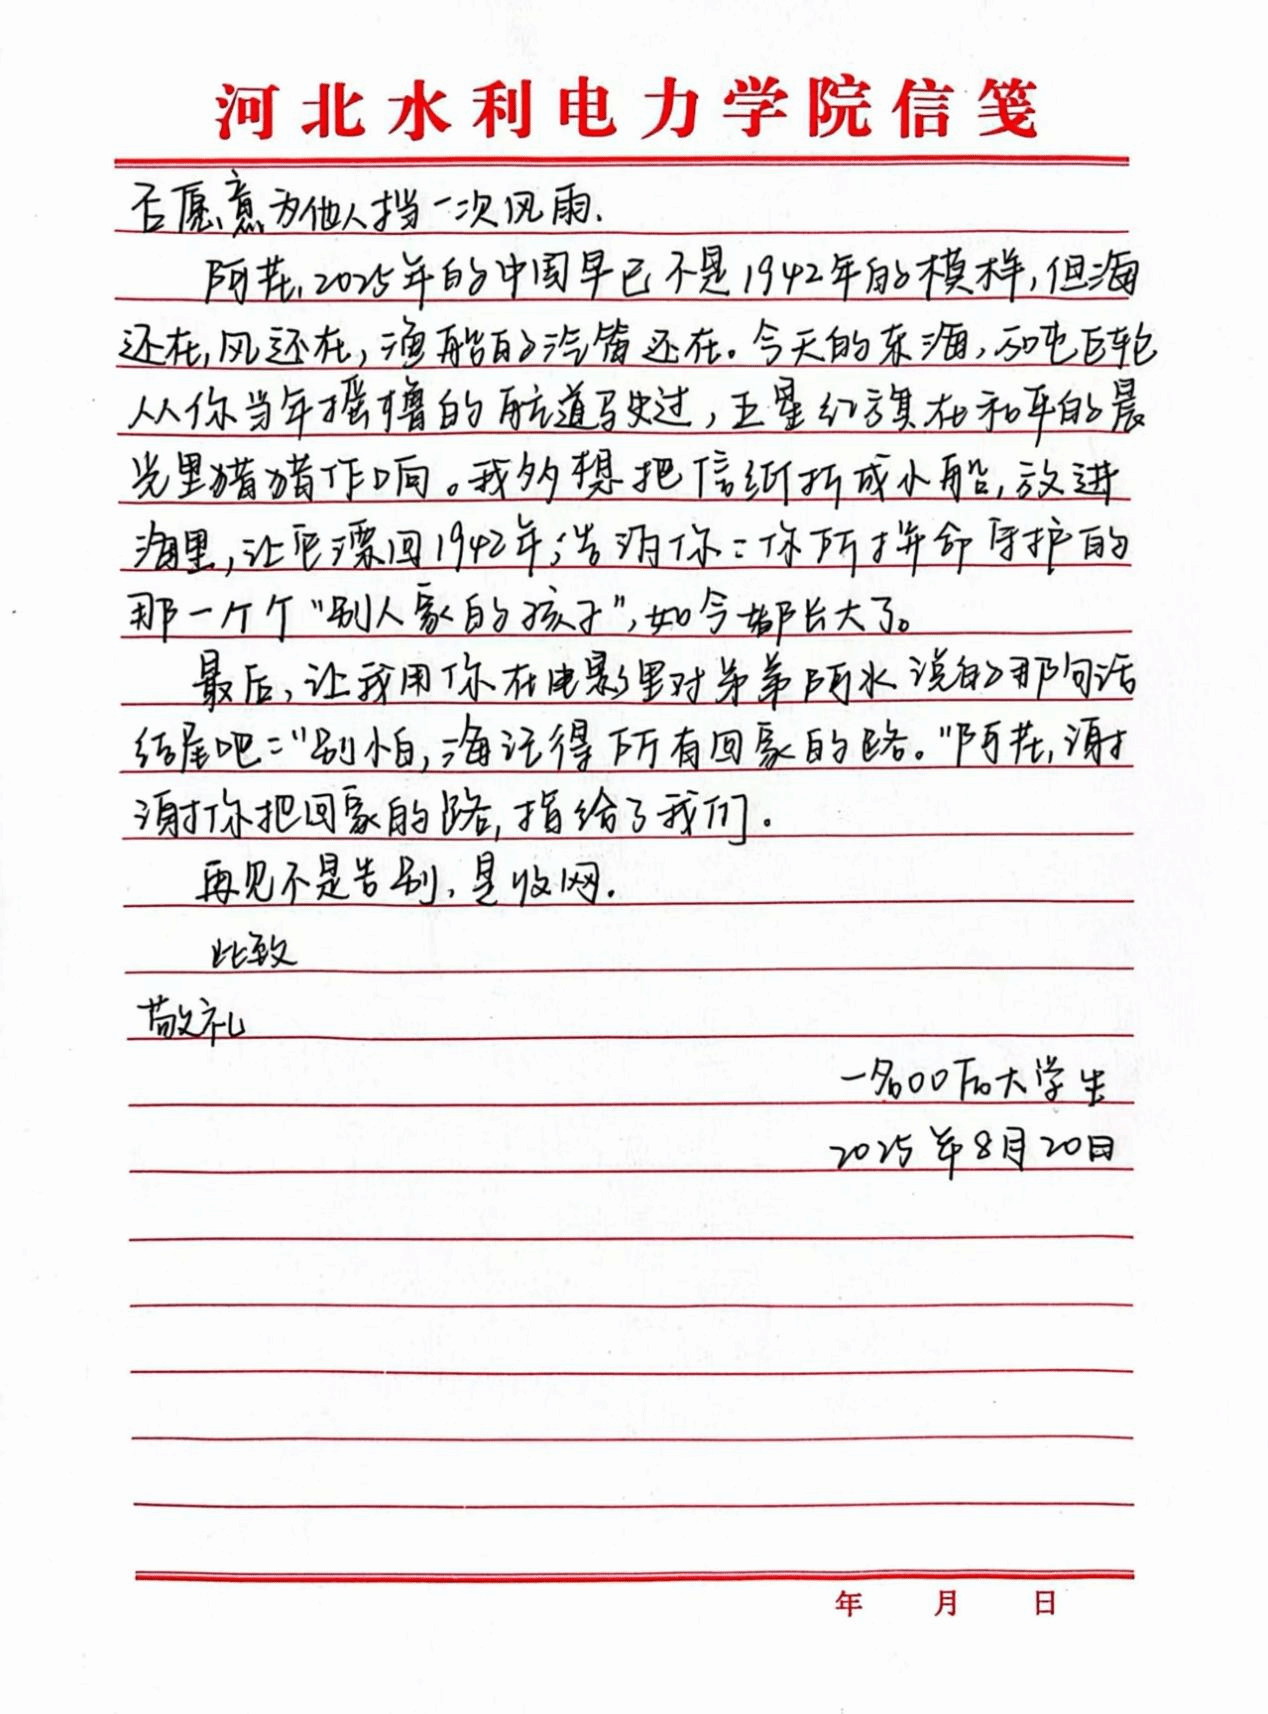 河北水利电力学院信笺
否愿意为他人挡一次风雨.
阿荘,2025年的中国早已不是1942年的模样,但海
还在,风还在,渔船的汽笛还在。今天的东海,万吨巨轮
从你当年摇橹的航道驶过,五星红旗在和平的晨
光里猎猎作响。我多想把信纸折成小船,放进
海里,让它漂回1942年,告诉你:你所拼命守护的
那一个个“别人家的孩子”,如今都长大了。
最后,让我用你在电影里对弟弟阿水说的那句话
结尾吧:“别怕,海记得所有回家的路。”阿荘,谢
谢你把回家的路,指给了我们。
再见不是告别,是收网.
此致
敬礼
一名00后大学生
2025年8月20日
年 月 日